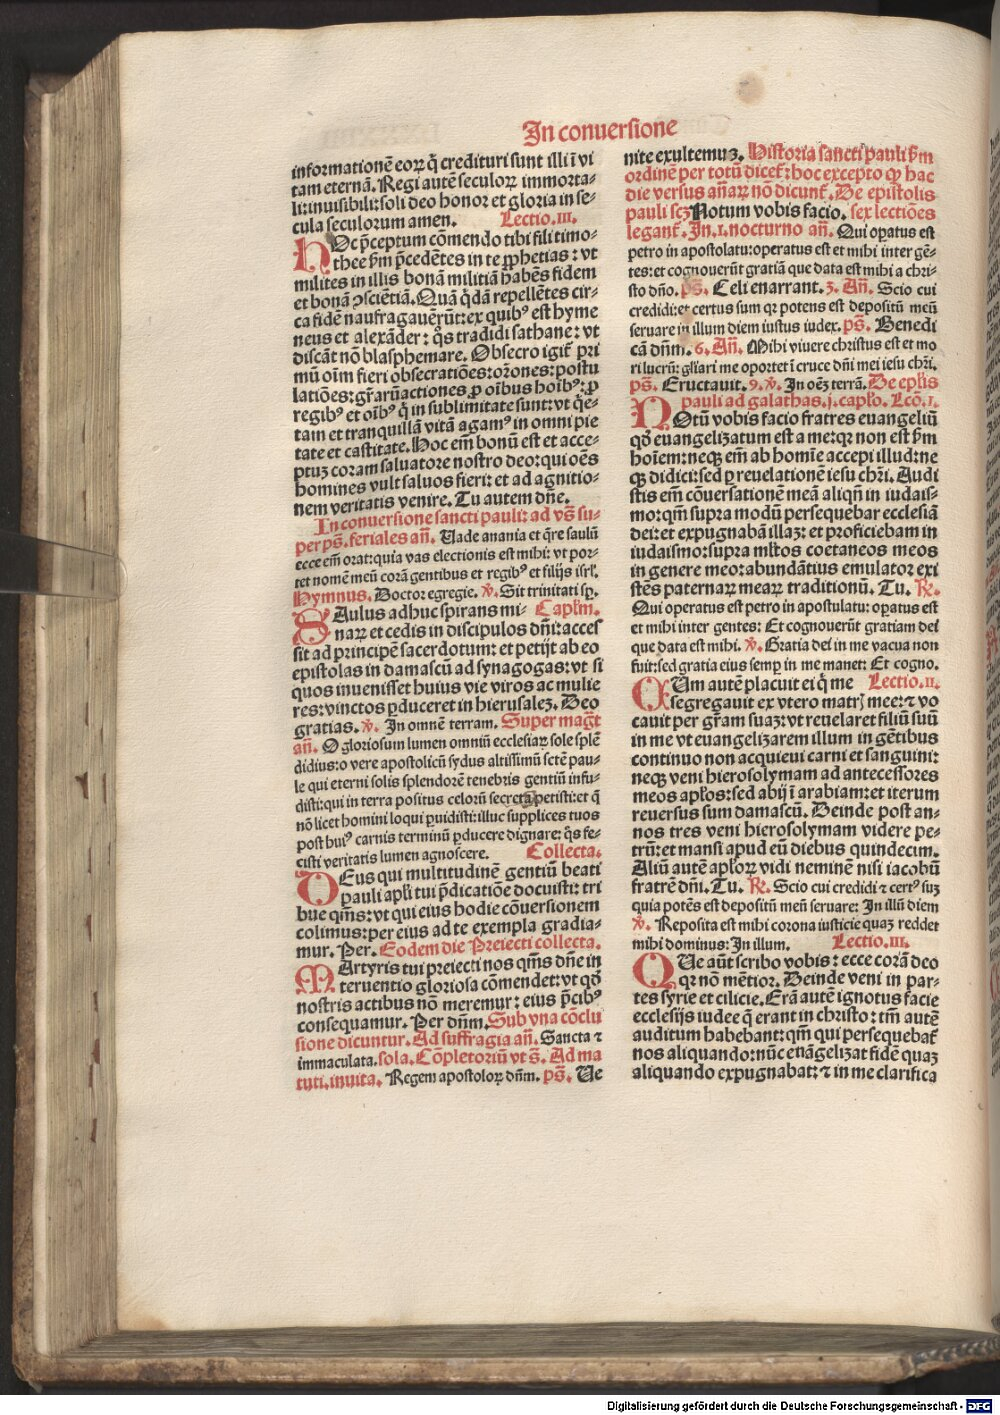 In conuersione
informationē eoꝝ q̄ credituri sunt illi ī vi
tam eternā. Regi autē seculoꝝ immorta-
li: inuisibili: soli deo honor et gloria in se-
cula seculorum amen. Lectio. III.
HOc p̄ceptum cōmendo tibi fili timo-
thee ẜm p̄cedētes in te ꝓphetias: vt
milites in illis bonā militiā habēs fidem
et bonā ꝯsciētiā. Quā q̄dā repellētes cir-
ca fidē naufragauerūt: ex quibꝰ est hyme
neus et alexāder: q̄s tradidi sathane: vt
discāt nō blasphemare. Obsecro igit̄ pri
mū oīm fieri obsecratiōes: orōnes: postu
latiōes: gr̄arū actiones ꝓ oībus hoībꝰ: ꝓ
regibꝰ et oībꝰ q̄ in sublimitate sunt: vt q̄e-
tam et tranquillā vitā agamꝰ in omni pie
tate et castitate. Hoc em̄ bonū est et acce-
ptuꝫ coram saluatore nostro deo: qui oēs
homines vult saluos fieri: et ad agnitio-
nem veritatis venire. Tu autem dn̄e.
In conuersione sancti pauli: ad vs̄ su-
per ps̄. feriales an̄. Uade anania et q̄re saulū
ecce em̄ orat: quia vas electionis est mihi: vt por-
tet nomē meū corā gentibus et regibꝰ et filijs isrl̄.
Hymnus. Doctor egregie. ℣. Sit trinitati sp̄.
SAulus adhuc spirans mi- Capl̄m.
naꝝ et cedis in discipulos dn̄i: acces
sit ad principē sacerdotum: et petijt ab eo
epistolas in damascū ad synagogas: vt si
quos inuenisset huius vie viros ac mulie
res: vinctos ꝑduceret in hierusaleꝫ. Deo
gratias. ℣. In omnē terram. Super maḡt
an̄. O gloriosum lumen omniū ecclesiaꝝ sole splē
didius: o vere apostolicū sydus altissimū sctē pau-
le qui eterni solis splendorē tenebris gentiū infu-
disti: qui in terra positus celorū secreta petisti: et q̄
nō licet homini loqui ꝑuidisti: illuc supplices tuos
post huiꝰ carnis terminū ꝑducere dignare: q̄s fe-
cisti veritatis lumen agnoscere. Collecta.
DEus qui multitudinē gentiū beati
pauli apl̄i tui p̄dicatiōe docuisti: tri
bue q̄ms: vt qui eius hodie cōuersionem
colimus: per eius ad te exempla gradia-
mur. Per. Eodem die Preiecti collecta.
MArtyris tui preiecti nos q̄ms dn̄e in
teruentio gloriosa cōmendet: vt qd̄
nostris actibus nō meremur: eius p̄cibꝰ
consequamur. Per dn̄m. Sub vna cōclu
sione dicuntur. Ad suffragia an̄. Sancta ⁊
immaculata. sola. Cōpletoriū vt s̄. Ad ma
tuti. inuita. Regem apostoloꝝ dn̄m. ps̄. Ue
nite exultemuꝫ. Historia sancti pauli ẜm
ordinē per totū dicet̄: hoc excepto ꝙ hac
die versus an̄aꝝ nō dicunt̄. De epistolis
pauli scꝫ Notum vobis facio. sex lectiōes
legant̄. In. 1. nocturno an̄. Qui oꝑatus est
petro in apostolatu: operatus est et mihi inter gē-
tes: et cognouerūt gratiā que data est mihi a chri-
sto dn̄o. ps̄. Celi enarrant. 3. An̄. Scio cui
credidi: et certus sum qꝛ potens est depositū meū
seruare in illum diem iustus iudex. ps̄. Benedi
cā dn̄m. 6. An̄. Mihi viuere christus est et mo
ri lucrū: gl̄iari me oportet ī cruce dn̄i mei iesu chr̄i.
ps̄. Eructauit. 9. ℣. In oēꝫ terrā. De epl̄is
pauli ad galathas. j. caplo. Lcō. I.
NOtū vobis facio fratres euangeliū
qd̄ euangelizatum est a me: qꝛ non est ẜm
hoīem: neqꝫ em̄ ab homīe accepi illud: ne
qꝫ didici: sed ꝑ reuelationē iesu chr̄i. Audi
stis em̄ cōuersationē meā aliqn̄ in iudais-
mo: qm̄ supra modū persequebar ecclesiā
dei: et expugnabā illaꝫ: et proficiebam in
iudaismo: supra ml̄tos coetaneos meos
in genere meo: abundātius emulator exi
stēs paternaꝝ meaꝝ traditionū. Tu. ℟.
Qui operatus est petro in apostulatu: oꝑatus est
et mihi inter gentes: Et cognouerūt gratiam dei
que data est mihi. ℣. Gratia dei in me vacua non
fuit: sed gratia eius semꝑ in me manet: Et cogno.
CUm autē placuit ei q̄ me Lectio. II.
segregauit ex vtero matrj mee: ⁊ vo
cauit per gr̄am suaꝫ: vt reuelaret filiū suū
in me vt euangelizarem illum in gētibus
continuo non acquieui carni et sanguini:
neqꝫ veni hierosolymam ad antecessores
meos apl̄os: sed abij ī arabiam: et iterum
reuersus sum damascū. Deinde post an-
nos tres veni hierosolymam videre pe-
trū: et mansi apud eū diebus quindecim.
Aliū autē apl̄oꝝ vidi neminē nisi iacobū
fratrē dn̄i. Tu. ℟. Scio cui credidi ⁊ certꝰ suꝫ
quia potēs est depositū meū seruare: In illū diem
℣. Reposita est mihi corona iusticie quaꝫ reddet
mihi dominus: In illum. Lectio. III.
QUe aūt scribo vobis: ecce corā deo
qꝛ nō mētior. Deinde veni in par-
tes syrie et cilicie. Erā autē ignotus facie
ecclesijs iudee q̄ erant in christo: tm̄ autē
auditum habebant: qm̄ qui persequebat̄
nos aliquando: nūc euāgelizat fidē quaꝫ
aliquando expugnabat: ⁊ in me clarifica
Digitalisierung gefördert durch die Deutsche Forschungsgemeinschaft - DFG